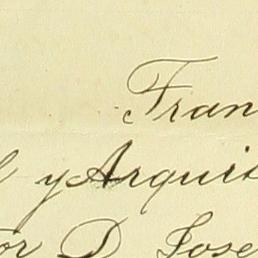 Fran
l y Arquit
or D. Jose